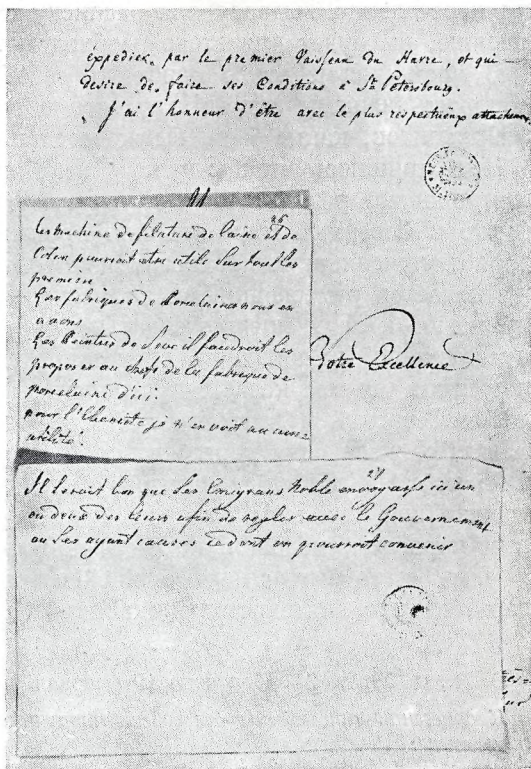 éxpedier par le premier Vaisseau du Havre, et qui
desire de faire ses Conditions à St. Petersbourg.
J'ai l'honneur d'être avec le plus respectueux attachement
26
Les machine de filature de laine et de
Coton pourroit etre utile Sur tout les
premiere
Les fabriques de Porcelaine nous en
avons
Les Peintres de Seve il faudroit les
proposer au Chefs de la fabrique de
porcelaine d'ici.
pour l'Chemiste je n'en voit aucune
utilité.
Votre Excellence
27
Il seroit bon que Les Emigrans Noble envoyasse ici un
ou deux des leurs afin de regler avec le Gouvernement
ou Les ayant causes ce dont on pourroit convenir